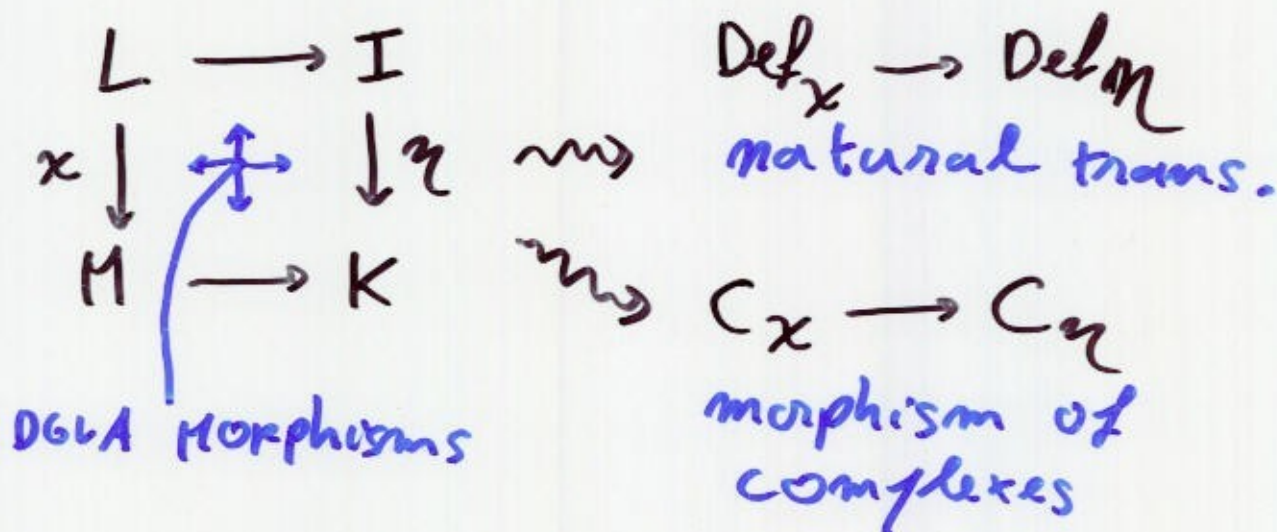 L ⟶ I
χ ↓ ↓ η
M ⟶ K
DGLA Morphisms
⇝ Def_χ ⟶ Def_η
natural trans.
⇝ C_χ ⟶ C_η
morphism of
complexes